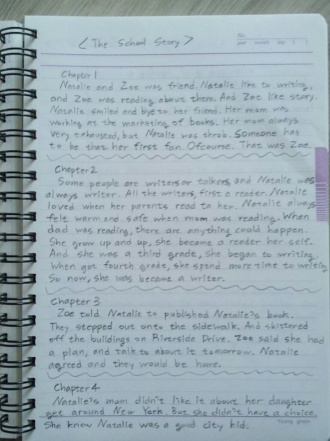 < The School Story >
No.
Chapter 1
Natalie and Zoe was friend. Natalie like to writing,
and Zoe was reading about them. And Zoe like story.
Natalie smiled and bye to her friend. Her mom was
working at the marketing of books. Her mom always
very exhausted, but Natalie was throb. Someone has
to be that her first fan. Ofcourse. That was Zoe.
Chapter 2
Some people are writers or talkers, and Natalie was
always writer. All the writers, first a reader. Natalie
loved when her parents read to her. Natalie always
felt warm and safe when mom was reading. When
dad was reading, there are anything could happen.
She grow up and up, she became a reader her self.
And she was a third grade, she began to writing.
When got fourth grade, she spend more time to writing
So now, she was become a writer.
Chapter 3
Zoe told Natalie to published Natalie's book.
They stepped out onto the sidewalk. And skittered
off the buildings on Riverside Drive. Zoe said she had
a plan, and talk about it tomorrow. Natalie
agreed and they would be home.
Chapter 4
Natalie's mom didn't like it about her daughter
get around New York. But she didn't have a choice.
She knew Natalie was a good city kid.